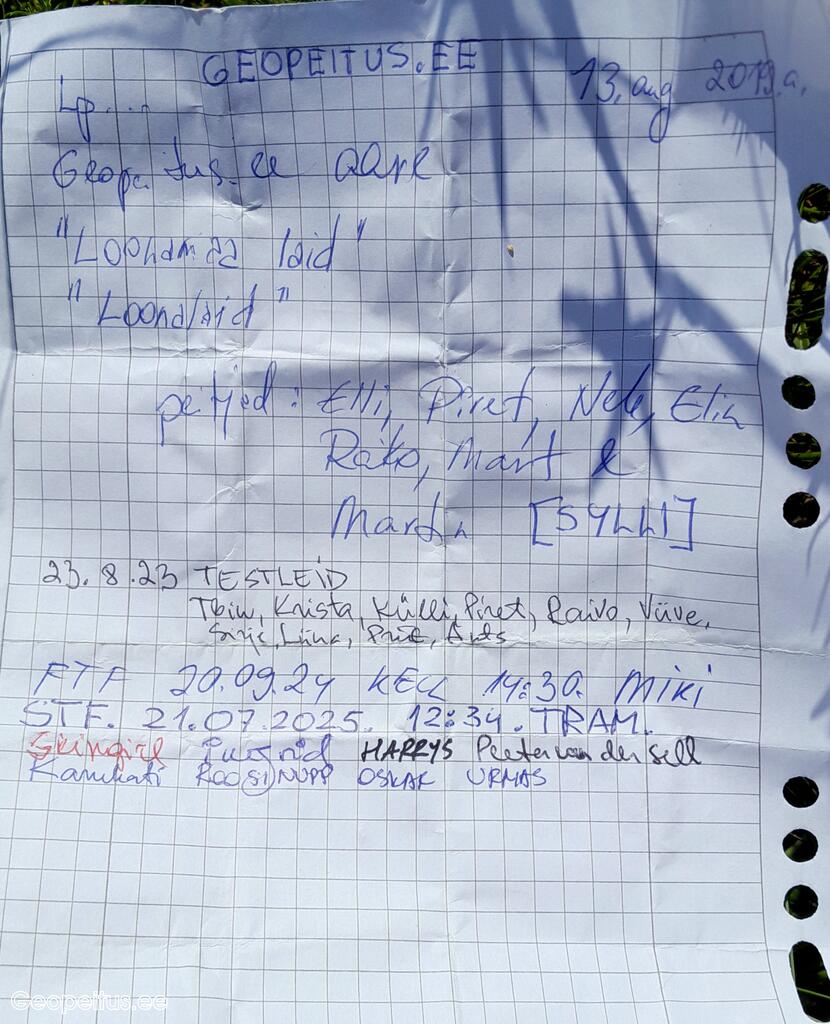 GEOPEITUS.EE
13. aug 2019.a.
Lp....
Geopeitus.ee aare
"Loonamaa laid"
"Loonalaid"
peitjed: Elli, Piret, Nele, Elin
Raiko, Mart &
Martin [SYLLI]
23.8.23 TESTLEID
Toiv, Krista, Külli, Piret, Raivo, Viive,
Sirje, Liina, Priit, Ants
FTF 20.09.24 KELL 14:30. MIKI
STF. 21.07.2025. 12:34. TRAM.
HARRYS Peetervandersell
Karukati ROOSINUPP OSKAR URMAS
Geopeitus.ee